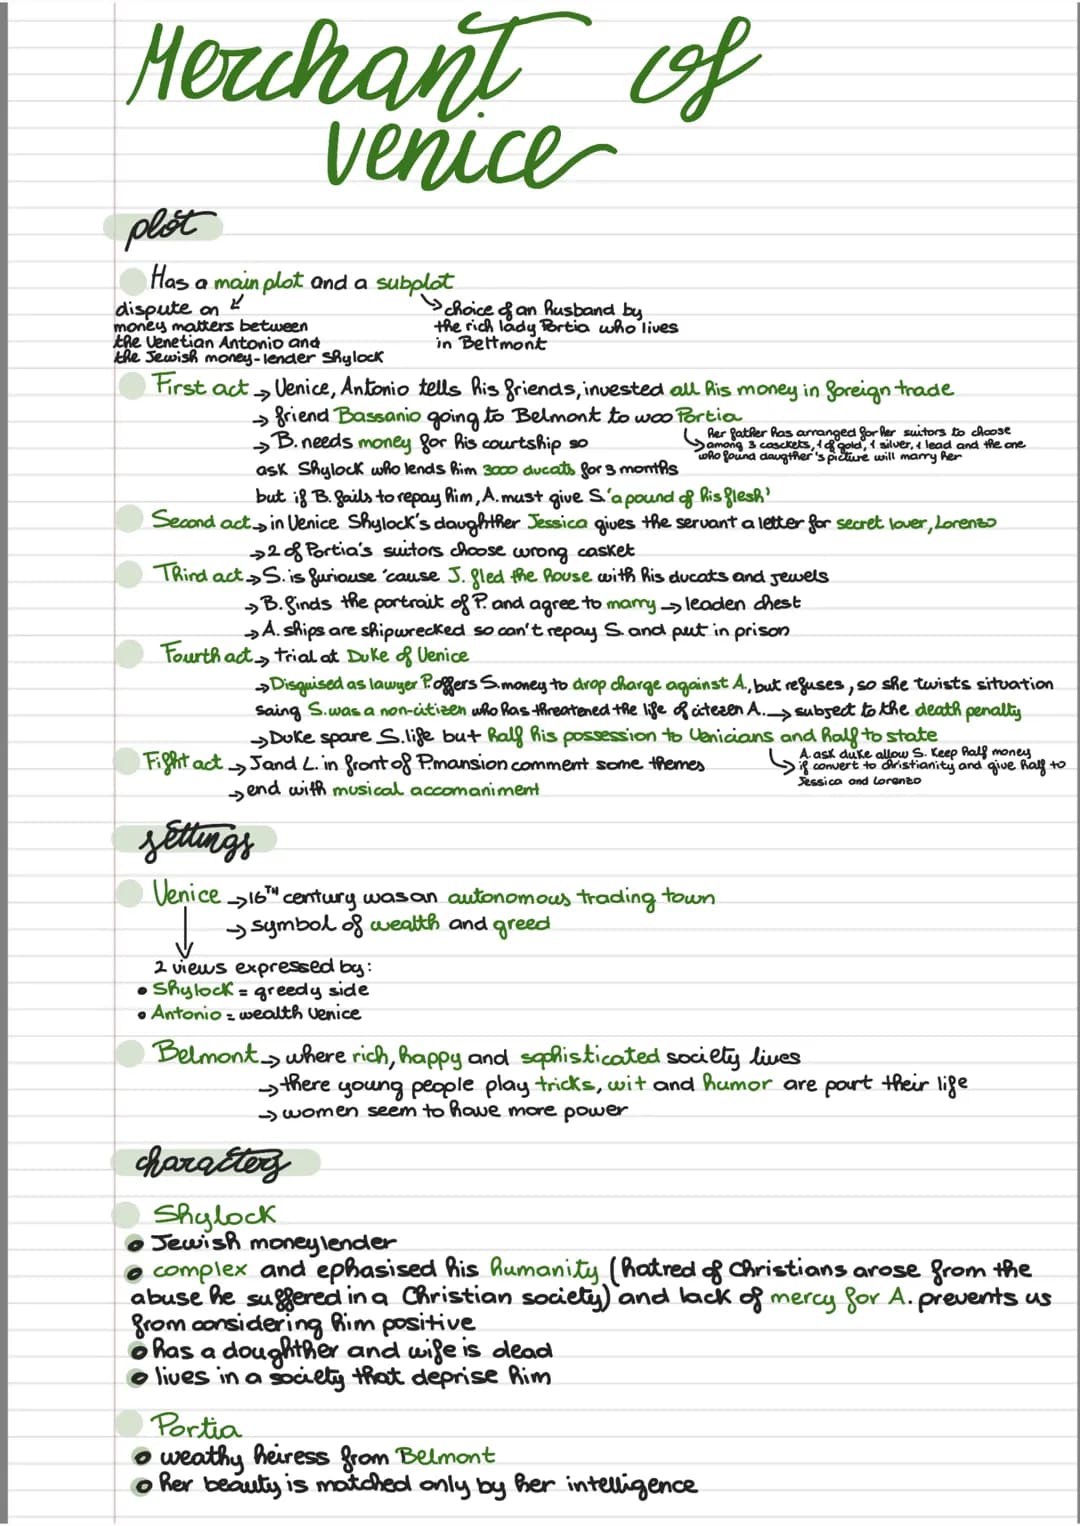 Merchant of
Venice
plot
Has a main plot and a subplot
dispute on
money matters between
the Venetian Antonio and
the Jewish money-lender Shylock
choice of an husband by
the rich lady Portia who lives
in Beltmont
First act → Venice, Antonio tells his friends, invested all his money in foreign trade
→ friend Bassanio going to Belmont to woo Portia
Her father has arranged for her suitors to choose
among 3 casckets, 1 of gold, 1 silver, 1 lead and the one
who found daugther's picture will marry her
→ B. needs money for his courtship so
ask Shylock who lends him 3000 ducats for 3 months
but if B. fails to repay him, A. must give S. 'a pound of his flesh'
Second act → in Venice Shylock's daughther Jessica gives the servant a letter for secret lover, Lorenzo
→ 2 of Portia's suitors choose wrong casket
Third act → S. is furiouse 'cause J. fled the house with his ducats and jewels
→ B. finds the portrait of P. and agree to marry → leaden chest
→ A. ships are shipwrecked so can't repay S. and put in prison
Fourth act → trial at Duke of Venice
→ Disguised as lawyer P. offers S. money to drop charge against A., but refuses, so she twists situation
saing S. was a non-citizen who has threatened the life of citezen A. → subject to the death penalty
→ Duke spare S. life but half his possession to Venicians and half to state
A. ask duke allow S. keep half money
if convert to christianity and give half to
Jessica and Lorenzo
Fight act → J and L. in front of P. mansion comment some themes
→ end with musical accomaniment
settings
Venice → 16TH century was an autonomous trading town
→ symbol of wealth and greed
2 views expressed by:
• Shylock = greedy side
• Antonio = wealth Venice
Belmont → where rich, happy and sophisticated society lives
→ there young people play tricks, wit and humor are part their life
→ women seem to have more power
characters
Shylock
• Jewish moneylender
• complex and ephasised his humanity (hatred of Christians arose from the
abuse he suffered in a Christian society) and lack of mercy for A. prevents us
from considering him positive
• has a doughther and wife is dead
• lives in a society that deprise him
Portia
• weathy heiress from Belmont
• her beauty is matched only by her intelligence